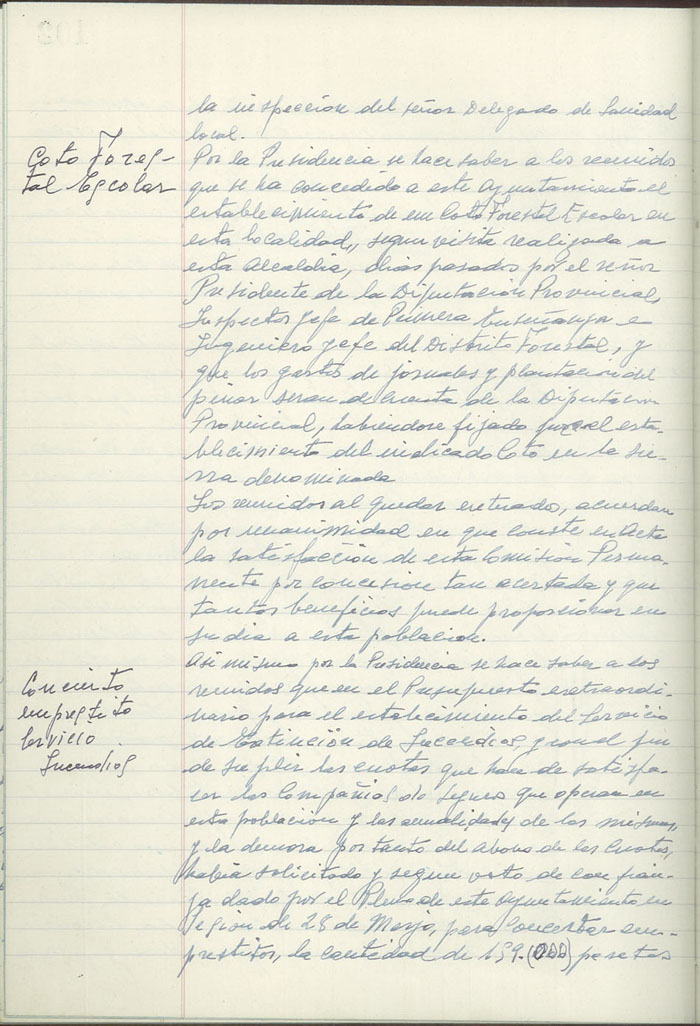 la inspección del señor Delegado de Sanidad
local.
Coto Fores-
tal Escolar
Por la Presidencia se hace saber a los reunidos
que se ha concedido a este Ayuntamiento el
establecimiento de un Coto Forestal Escolar en
esta localidad, segun visita realizada a
esta Alcaldia, dias pasados por el señor
Presidente de la Diputación Provincial,
Inspector Jefe de Primera Enseñanza e
Ingeniero Jefe del Distrito Forestal, y
que los gastos de jornales y plantacion del
pinar seran de cuenta de la Diputacion
Provincial, habiendose fijado para el esta-
blecimiento del indicado Coto en la Sie-
rra denominada
Los reunidos al quedar enterados, acuerdan
por unanimidad en que conste en Acta
la satisfacción de esta Comisión Perma-
nente por concesion tan acertada y que
tantos beneficios puede proporcionar en
su dia a esta poblacion.
Concierto
empréstito
Servicio
Incendios
Asi mismo por la Presidencia se hace saber a los
reunidos que en el Presupuesto extraordi-
nario para el establecimiento del Servicio
de Extinción de Incendios, y con el fin
de suplir las cuotas que han de satisfa-
cer las Compañias de seguros que operan en
esta población y las anualidades de las mismas,
y la demora por tanto del abono de las cuotas,
habia solicitado y segun voto de confian-
za dado por el Pleno de este Ayuntamiento en
sesion de 28 de Marzo, para concertar em-
prestitos, la cantidad de 159.(000) pesetas